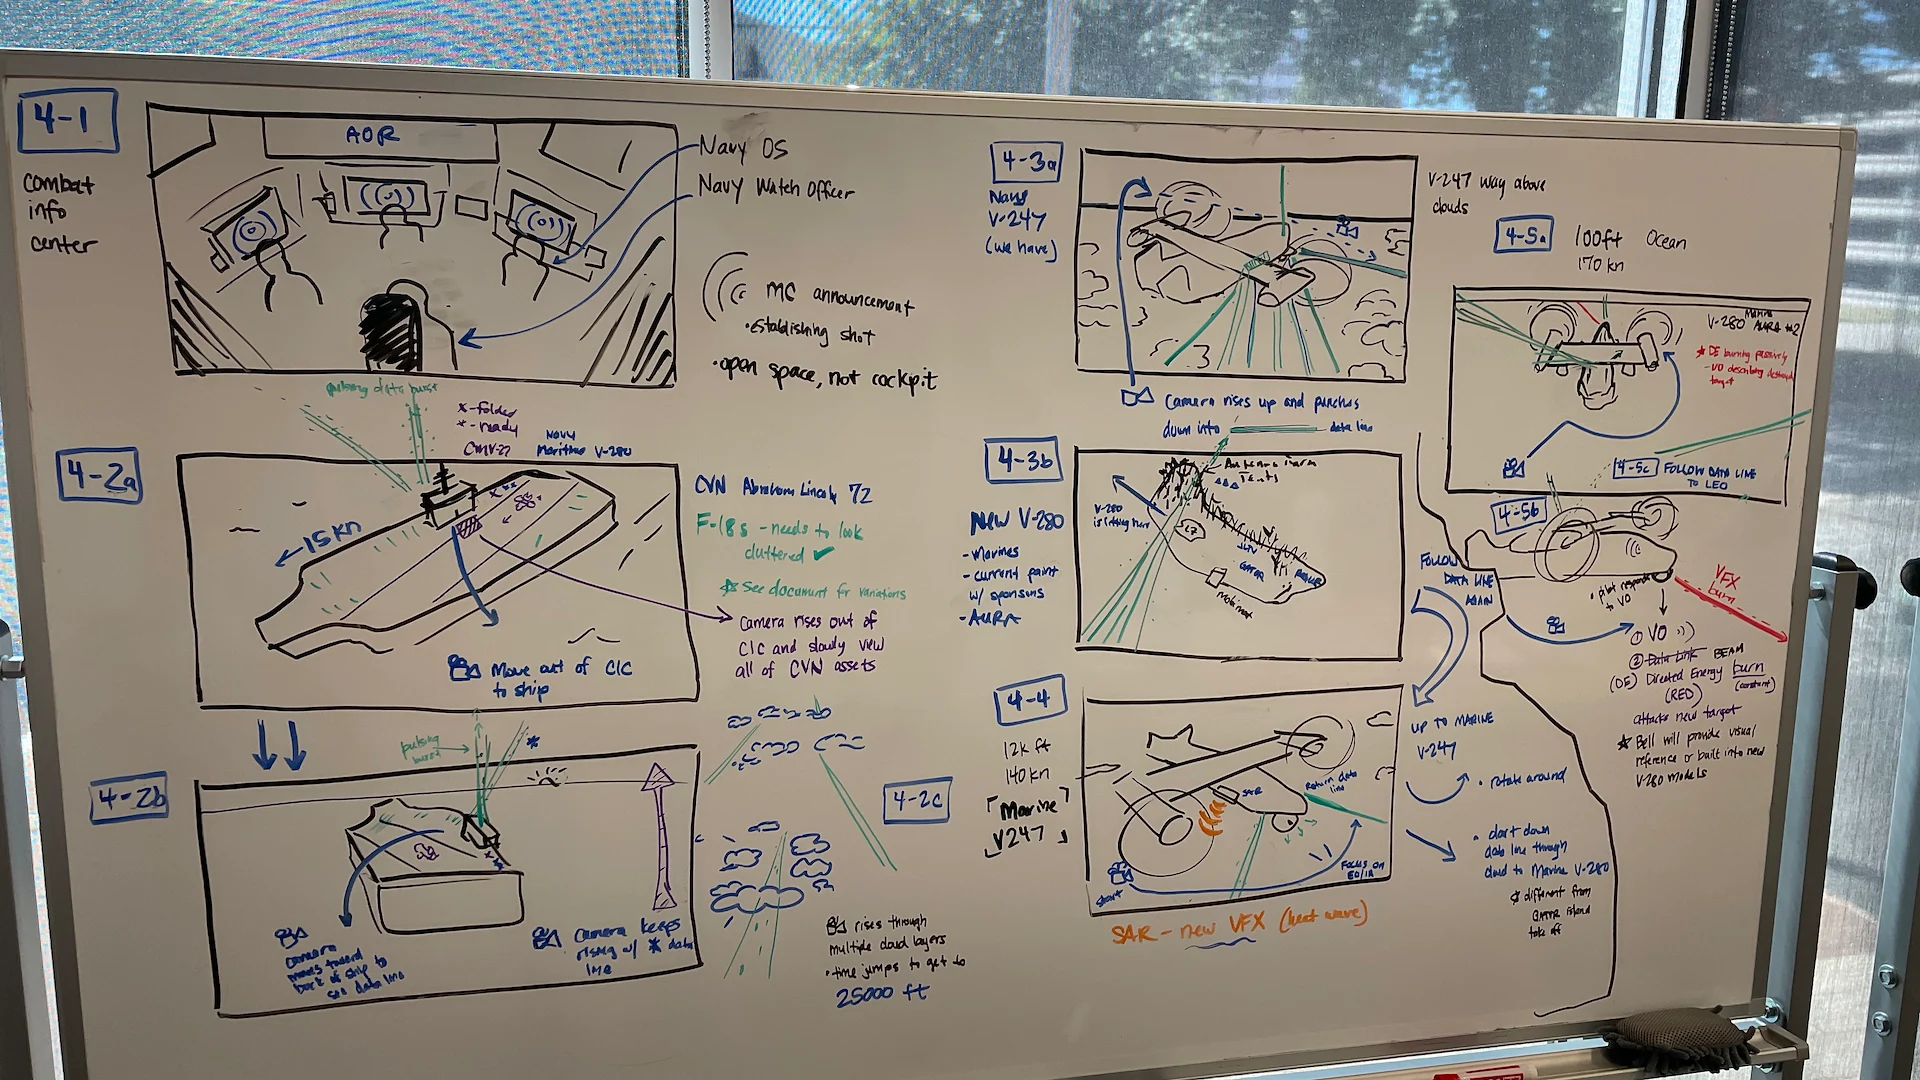 4-1
combat
info
center
AOR
Navy OS
Navy Watch Officer
MC announcement
• establishing shot
• open space, not cockpit
pulsing data burst
x - folded
x - ready
CMV-22
Navy
Maritime V-280
4-2a
15 kn
CVN Abraham Lincoln 72
F-18s - needs to look
cluttered ✓
☆ See document for variations
Camera rises out of
CIC and slowly view
all of CVN assets
Move out of CIC
to ship
4-2b
pulsing
burst
camera
moves toward
back of ship to
see data line
Camera keeps
rising w/ * data
line
4-2c
rises through
multiple cloud layers
• time jumps to get to
25000 ft
4-3a
Navy
V-247
(we have)
V-247 way above
clouds
Camera rises up and punches
down into
data line
4-3b
New V-280
- Marines
- current paint
w/ sponsons
- AURA
V-280
is sitting here
Antenna farm
Tents
LZ
JLTV
GATOR
4-4
12k ft
140 kn
Marine
V247
SAR
Return data
line
start
Focus on
EO/IR
SAR - new VFX (heat wave)
FOLLOW
DATA LINE
AGAIN
UP TO MARINE
V-247
• rotate around
• dart down
data line through
cloud to Marine V-280
☆ different from
GATOR island
take off
4-5a
100ft Ocean
170 kn
V-280 Marine
AURA #2
★ DE burning passively
- VO describing destroyed
target
4-5c FOLLOW DATA LINE
TO LEO
4-5b
• pilot responds
to VO
VFX
burn
① VO
② Data Link BEAM
(DE) Directed Energy burn
(RED) (constant)
attacks new target
★ Bell will provide visual
reference or built into new
V-280 models